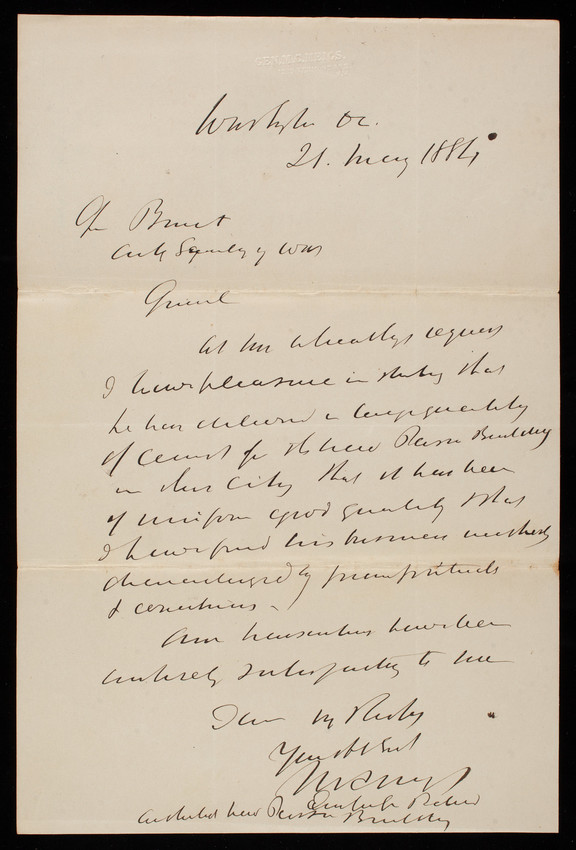 Washington DC.
21. May 1884
Gn Brunt
Secretary of War
General
At Mr Wheatleys request
I have pleasure in stating that
he has delivered a large quantity
of Cement for the new Pension Building
in this City that it has been
of uniform good quality & that
I have found his business methods
characterized by promptitude
&
Our transactions have been
entirely satisfactory to me
I am Vy Rectly
Your Obt Svt
Architect New Pension Building